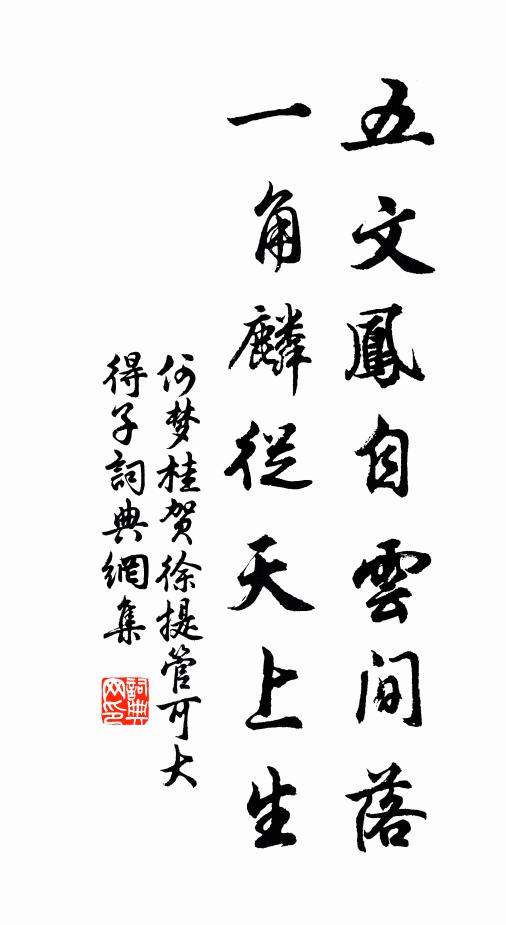 五文鳳自雲間落
一角麟從天上生
何梦桂贺徐提管可大
得子詞典網集
詞典网印